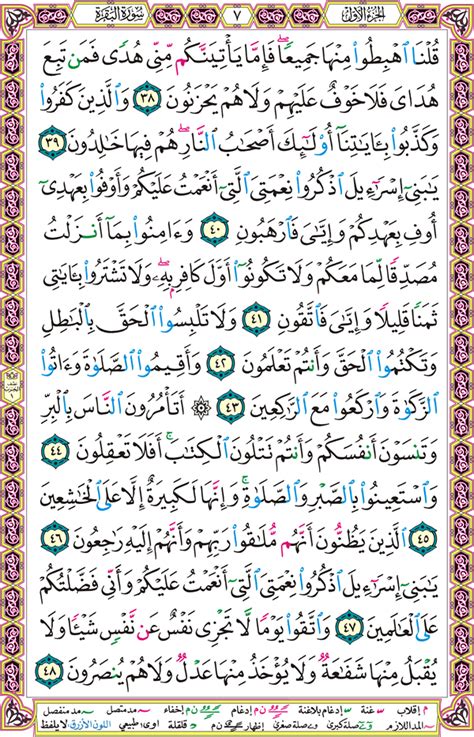 الجزء الأول ٧ سورة البقرة
قُلْنَا ٱهْبِطُوا۟ مِنْهَا جَمِيعًا ۖ فَإِمَّا يَأْتِيَنَّكُم مِّنِّى هُدًى فَمَن تَبِعَ
هُدَاىَ فَلَا خَوْفٌ عَلَيْهِمْ وَلَا هُمْ يَحْزَنُونَ ٣٨ وَٱلَّذِينَ كَفَرُوا۟
وَكَذَّبُوا۟ بِـَٔايَـٰتِنَآ أُو۟لَـٰٓئِكَ أَصْحَـٰبُ ٱلنَّارِ ۖ هُمْ فِيهَا خَـٰلِدُونَ ٣٩
يَـٰبَنِىٓ إِسْرَٰٓءِيلَ ٱذْكُرُوا۟ نِعْمَتِىَ ٱلَّتِىٓ أَنْعَمْتُ عَلَيْكُمْ وَأَوْفُوا۟ بِعَهْدِىٓ
أُوفِ بِعَهْدِكُمْ وَإِيَّـٰىَ فَٱرْهَبُونِ ٤٠ وَءَامِنُوا۟ بِمَآ أَنزَلْتُ
مُصَدِّقًا لِّمَا مَعَكُمْ وَلَا تَكُونُوٓا۟ أَوَّلَ كَافِرٍۭ بِهِۦ ۖ وَلَا تَشْتَرُوا۟ بِـَٔايَـٰتِى
ثَمَنًا قَلِيلًا وَإِيَّـٰىَ فَٱتَّقُونِ ٤١ وَلَا تَلْبِسُوا۟ ٱلْحَقَّ بِٱلْبَـٰطِلِ
وَتَكْتُمُوا۟ ٱلْحَقَّ وَأَنتُمْ تَعْلَمُونَ ٤٢ وَأَقِيمُوا۟ ٱلصَّلَوٰةَ وَءَاتُوا۟
ٱلزَّكَوٰةَ وَٱرْكَعُوا۟ مَعَ ٱلرَّٰكِعِينَ ٤٣ ۞ أَتَأْمُرُونَ ٱلنَّاسَ بِٱلْبِرِّ
وَتَنسَوْنَ أَنفُسَكُمْ وَأَنتُمْ تَتْلُونَ ٱلْكِتَـٰبَ ۚ أَفَلَا تَعْقِلُونَ ٤٤
وَٱسْتَعِينُوا۟ بِٱلصَّبْرِ وَٱلصَّلَوٰةِ ۚ وَإِنَّهَا لَكَبِيرَةٌ إِلَّا عَلَى ٱلْخَـٰشِعِينَ
٤٥ ٱلَّذِينَ يَظُنُّونَ أَنَّهُم مُّلَـٰقُوا۟ رَبِّهِمْ وَأَنَّهُمْ إِلَيْهِ رَٰجِعُونَ ٤٦
يَـٰبَنِىٓ إِسْرَٰٓءِيلَ ٱذْكُرُوا۟ نِعْمَتِىَ ٱلَّتِىٓ أَنْعَمْتُ عَلَيْكُمْ وَأَنِّى فَضَّلْتُكُمْ
عَلَى ٱلْعَـٰلَمِينَ ٤٧ وَٱتَّقُوا۟ يَوْمًا لَّا تَجْزِى نَفْسٌ عَن نَّفْسٍ شَيْـًٔا وَلَا
يُقْبَلُ مِنْهَا شَفَـٰعَةٌ وَلَا يُؤْخَذُ مِنْهَا عَدْلٌ وَلَا هُمْ يُنصَرُونَ ٤٨
م إقلاب غنة إدغام بلاغنة ن م إدغام إخفاء مد متصل مد منفصل
المد اللازم صلة كبرى صلة صغرى إظهار ن م قلقلة اوى: طبيعي اللون الأزرق لا يلفظ